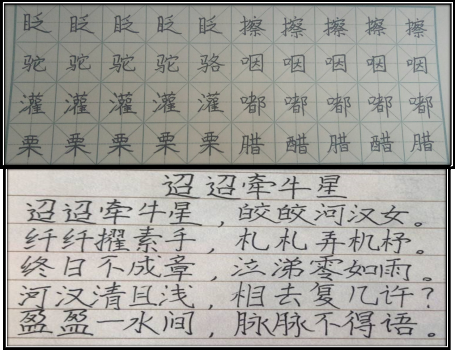 眨眨眨眨眨擦擦擦擦擦
驼驼驼驼骆咽咽咽咽咽
灌灌灌灌灌嘟嘟嘟嘟嘟
栗栗栗栗栗腊醋腊醋腊
迢迢牵牛星
迢迢牵牛星，皎皎河汉女。
纤纤擢素手，札札弄机杼。
终日不成章，泣涕零如雨。
河汉清且浅，相去复几许？
盈盈一水间，脉脉不得语。